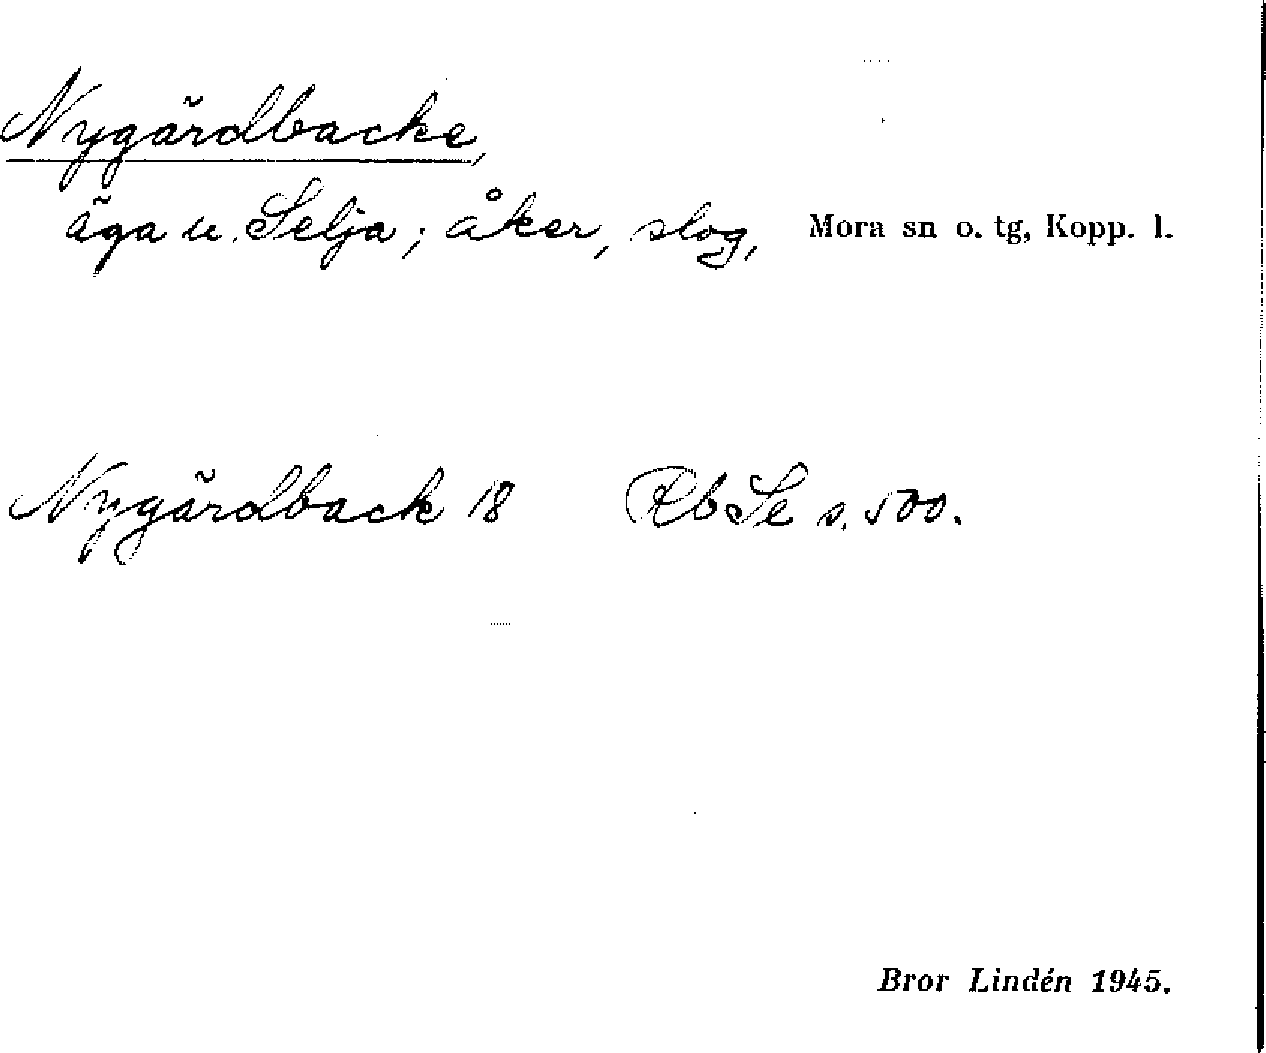 Nygärdbacke,
äga u. Selja; åker, slog, Mora sn o. tg, Kopp. l.
Nygärdback 18 Rb Se s. 500.
Bror Lindén 1945.